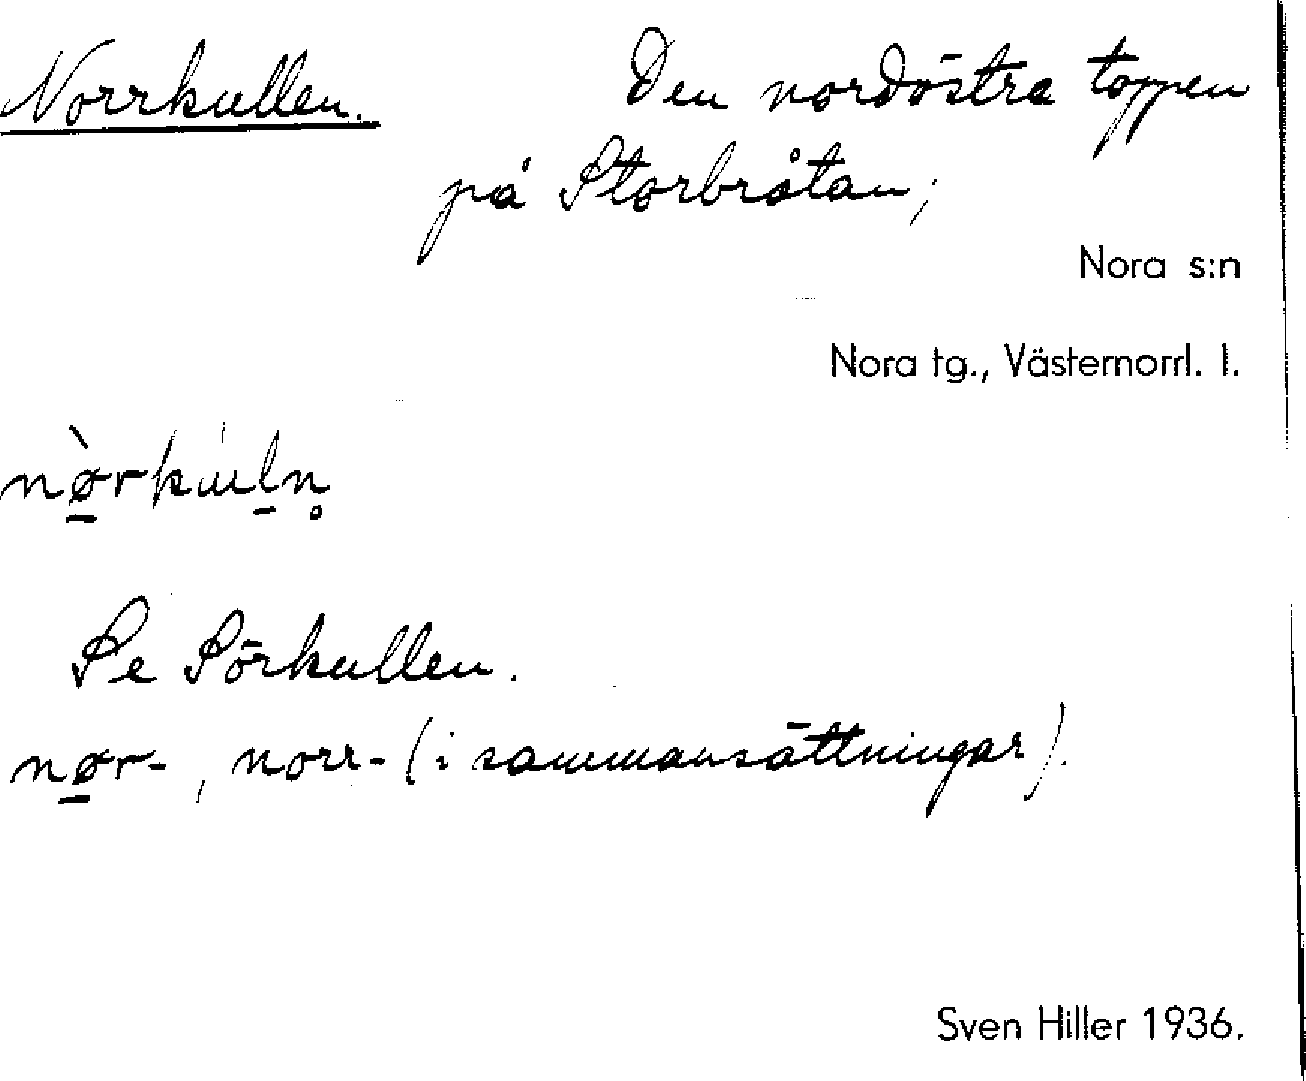 Norrkullen. Den nordöstra toppen
på Storbråtan;
Nora s:n
Nora tg., Västernorrl. l.
nø̱̀rku̇ḻn̥
Se Sörkullen.
nø̱r-, norr- (i sammansättningar).
Sven Hiller 1936.